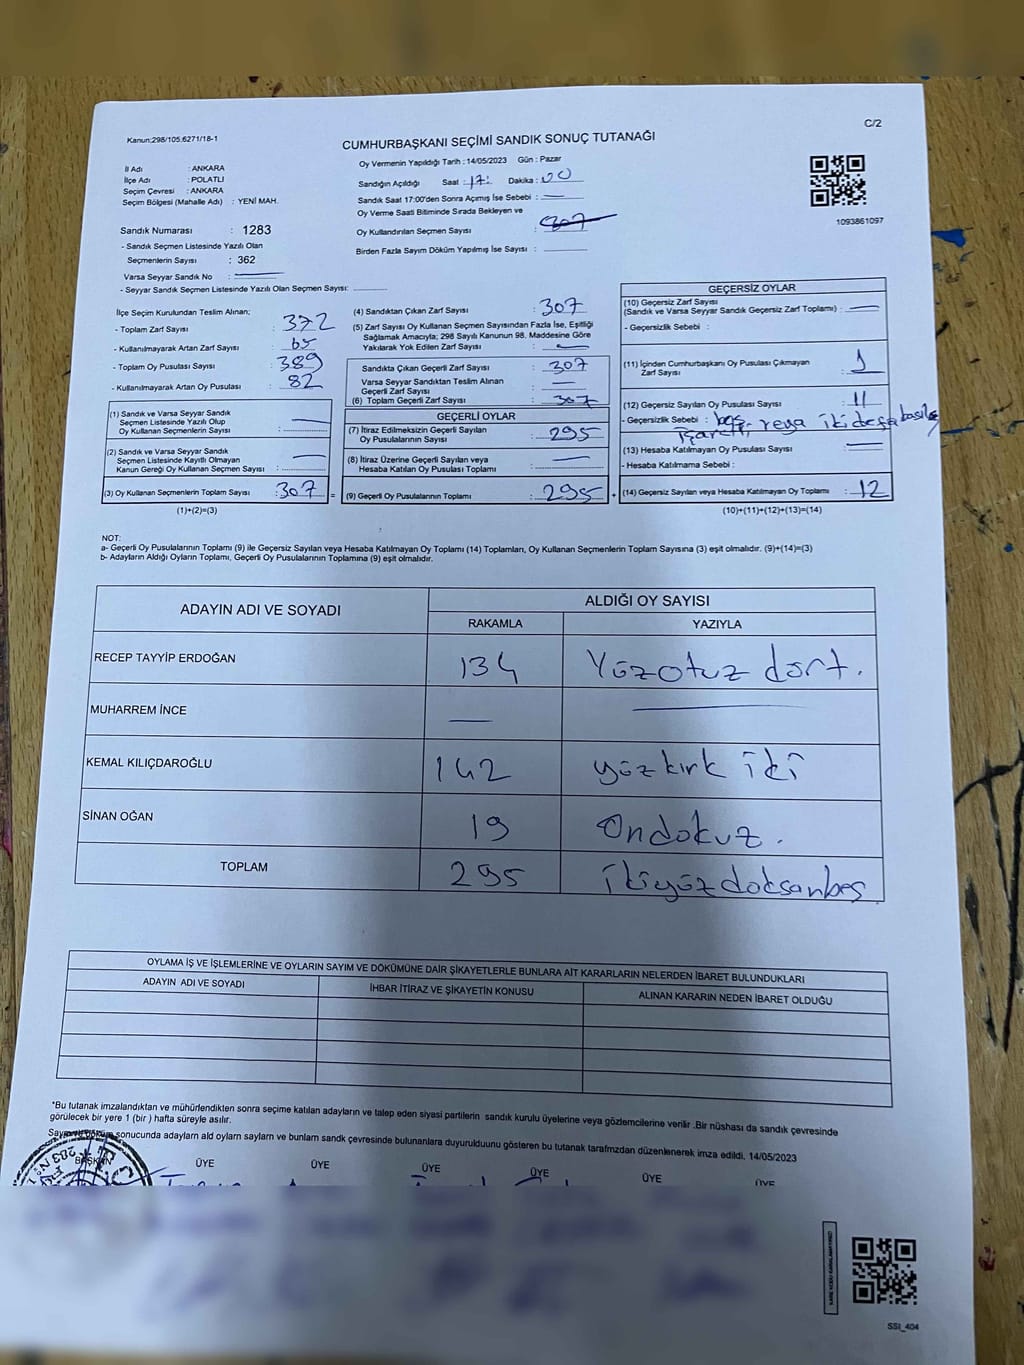 Kanun:298/105.6271/18-1
C/2
CUMHURBAŞKANI SEÇİMİ SANDIK SONUÇ TUTANAĞI
İl Adı : ANKARA
İlçe Adı : POLATLI
Seçim Çevresi : ANKARA
Seçim Bölgesi (Mahalle Adı) : YENİ MAH.
Oy Vermenin Yapıldığı Tarih : 14/05/2023 Gün : Pazar
Sandığın Açıldığı Saat : 17: Dakika : 00
Sandık Saat 17:00'den Sonra Açımış İse Sebebi : —
Oy Verme Saati Bitiminde Sırada Bekleyen ve
Oy Kullandırılan Seçmen Sayısı : 307
Birden Fazla Sayım Döküm Yapılmış İse Sayısı :
1093861097
Sandık Numarası : 1283
- Sandık Seçmen Listesinde Yazılı Olan
Seçmenlerin Sayısı : 362
Varsa Seyyar Sandık No : —
- Seyyar Sandık Seçmen Listesinde Yazılı Olan Seçmen Sayısı:
İlçe Seçim Kurulundan Teslim Alınan;
- Toplam Zarf Sayısı : 372
- Kullanılmayarak Artan Zarf Sayısı : 65
- Toplam Oy Pusulası Sayısı : 389
- Kullanılmayarak Artan Oy Pusulası : 82
(1) Sandık ve Varsa Seyyar Sandık
Seçmen Listesinde Yazılı Olup
Oy Kullanan Seçmenlerin Sayısı : —
(2) Sandık ve Varsa Seyyar Sandık
Seçmen Listesinde Kayıtlı Olmayan
Kanun Gereği Oy Kullanan Seçmen Sayısı : —
(3) Oy Kullanan Seçmenlerin Toplam Sayısı : 307 =
(1)+(2)=(3)
(4) Sandıktan Çıkan Zarf Sayısı : 307
(5) Zarf Sayısı Oy Kullanan Seçmen Sayısından Fazla İse, Eşitliği
Sağlamak Amacıyla; 298 Sayılı Kanunun 98. Maddesine Göre
Yakılarak Yok Edilen Zarf Sayısı : —
Sandıkta Çıkan Geçerli Zarf Sayısı : 307
Varsa Seyyar Sandıktan Teslim Alınan
Geçerli Zarf Sayısı : —
(6) Toplam Geçerli Zarf Sayısı : 307
GEÇERLİ OYLAR
(7) İtiraz Edilmeksizin Geçerli Sayılan
Oy Pusulalarının Sayısı : 295
(8) İtiraz Üzerine Geçerli Sayılan veya
Hesaba Katılan Oy Pusulası Toplamı : —
(9) Geçerli Oy Pusulalarının Toplamı : 295 +
GEÇERSİZ OYLAR
(10) Geçersiz Zarf Sayısı
(Sandık ve Varsa Seyyar Sandık Geçersiz Zarf Toplamı) : —
- Geçersizlik Sebebi :
(11) İçinden Cumhurbaşkanı Oy Pusulası Çıkmayan
Zarf Sayısı : 1
(12) Geçersiz Sayılan Oy Pusulası Sayısı : 11
- Geçersizlik Sebebi : boş
işareti, veya iki defa basılı
(13) Hesaba Katılmayan Oy Pusulası Sayısı : —
- Hesaba Katılmama Sebebi :
(14) Geçersiz Sayılan veya Hesaba Katılmayan Oy Toplamı : 12
(10)+(11)+(12)+(13)=(14)
NOT:
a- Geçerli Oy Pusulalarının Toplamı (9) ile Geçersiz Sayılan veya Hesaba Katılmayan Oy Toplamı (14) Toplamları, Oy Kullanan Seçmenlerin Toplam Sayısına (3) eşit olmalıdır. (9)+(14)=(3)
b- Adayların Aldığı Oyların Toplamı, Geçerli Oy Pusulalarının Toplamına (9) eşit olmalıdır.
ADAYIN ADI VE SOYADI
ALDIĞI OY SAYISI
RAKAMLA YAZIYLA
RECEP TAYYİP ERDOĞAN 134 Yüzotuz dört.
MUHARREM İNCE — —
KEMAL KILIÇDAROĞLU 142 yüzkırk iki
SİNAN OĞAN 19 Ondokuz.
TOPLAM 295 ikiyüzdoksanbeş
OYLAMA İŞ VE İŞLEMLERİNE VE OYLARIN SAYIM VE DÖKÜMÜNE DAİR ŞİKAYETLERLE BUNLARA AİT KARARLARIN NELERDEN İBARET BULUNDUKLARI
ADAYIN ADI VE SOYADI
İHBAR İTİRAZ VE ŞİKAYETİN KONUSU
ALINAN KARARIN NEDEN İBARET OLDUĞU
*Bu tutanak imzalandıktan ve mühürlendikten sonra seçime katılan adayların ve talep eden siyasi partilerin sandık kurulu üyelerine veya gözlemcilerine verilir .Bir nüshası da sandık çevresinde
görülecek bir yere 1 (bir ) hafta süreyle asılır.
sonucunda adayların ald oyların sayların ve bunlam sandk çevresinde bulunanlara duyurulduunu gösteren bu tutanak tarafmzdan düzenlenerek imza edildi. 14/05/2023
BAŞKAN ÜYE ÜYE ÜYE ÜYE ÜYE ÜYE
SSI_404